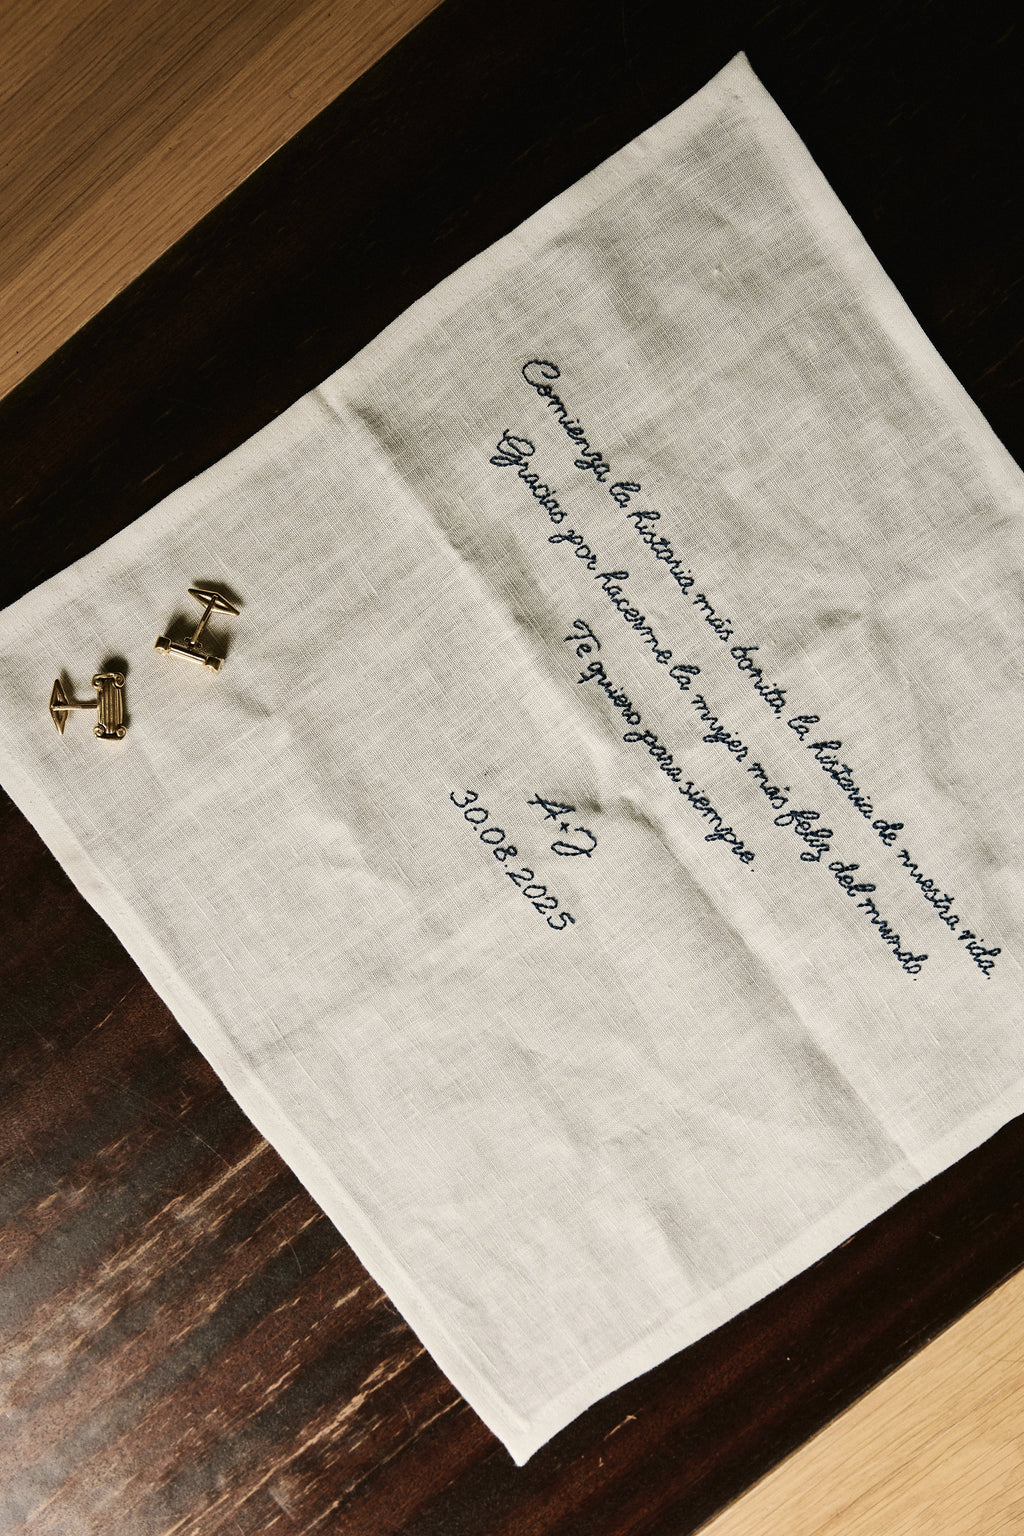 Comienza la historia más bonita, la historia de nuestra vida.
Gracias por hacerme la mujer más feliz del mundo.
Te quiero para siempre.
A+J
30.08.2025